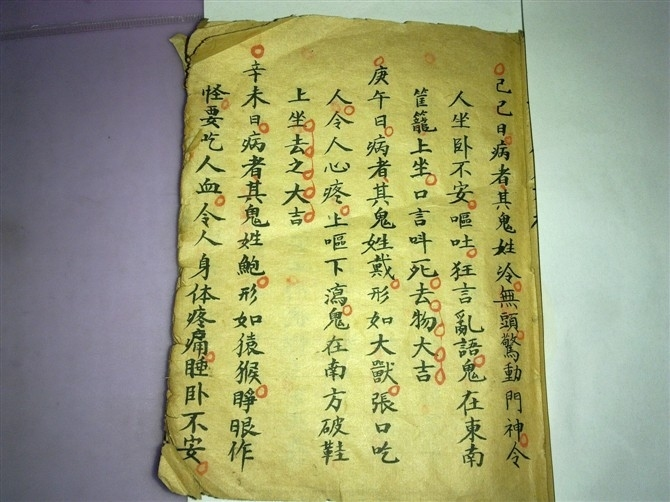 己巳日病者其鬼姓冷無頭驚動門神令
人坐卧不安嘔吐狂言亂語鬼在東南
筐籠上坐口言呌死去物大吉
庚午日病者其鬼姓戴形如大獸張口吃
人令人心疼上嘔下瀉鬼在南方破鞋
上坐去之大吉
辛未日病者其鬼姓鮑形如猿猴睜眼作
怪要吃人血令人身体疼痛睡卧不安